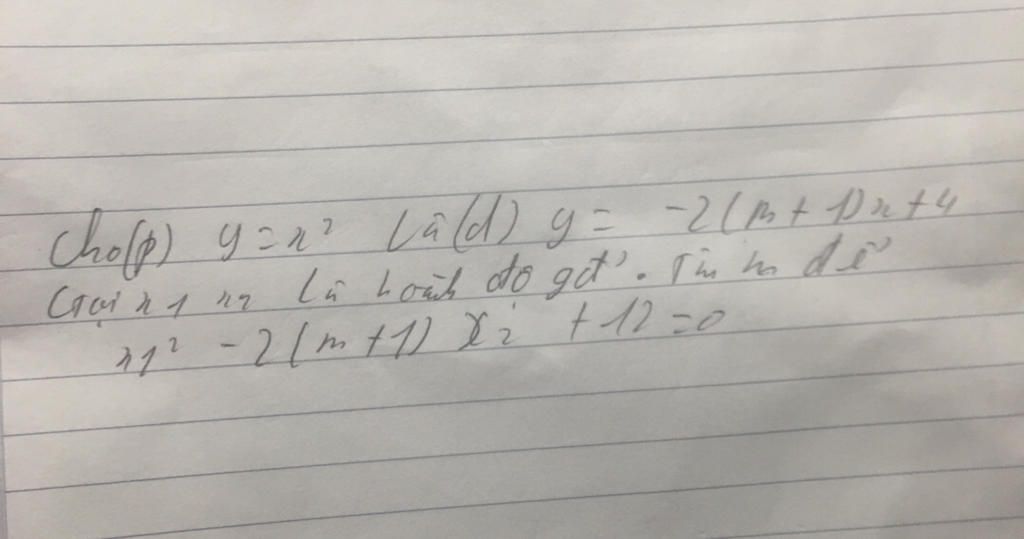 Cho(p) y = x² và (d) y = -2(m+1)x+4
Gọi x1 x2 là hoành độ gđ. Tìm m để
x1² - 2(m+1) x2 + 12 = 0